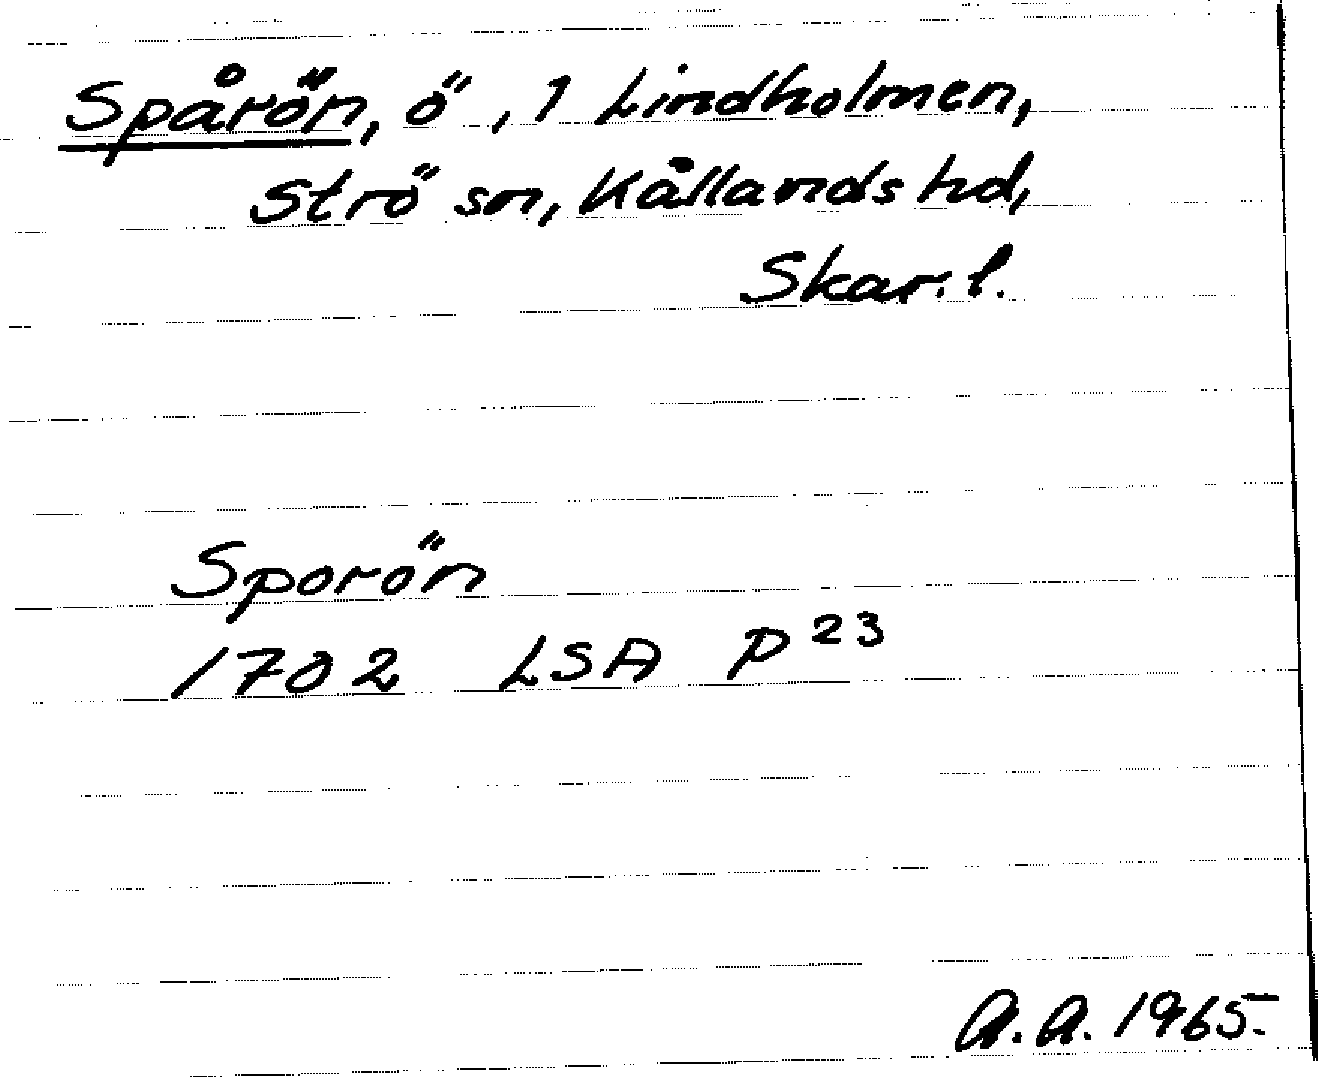 Spårön, ö, 1 Lindholmen,
Strö sn, Kållands hd,
Skar. l.
Sporön
1702 LSA P 23
A. A. 1965.